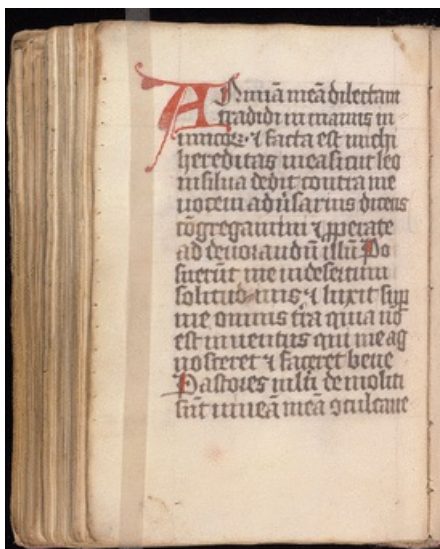 Animā meā dilectam
tradidi in manus in
imicoꝝ· ⁊ facta est michi
hereditas mea sicut leo
in silua dedit contra me
uocem aduersarius dicens
cōgregamini ⁊ ꝓperate
ad deuorandū illū Po
suerūt me in desertum
solitudinis ⁊ luxit suꝑ
me omnis tr̄a quia nō
est inuentus qui me ag
nosceret ⁊ faceret bene
Pastores multi demoliti
sūt uineā meā ꝯculcaue